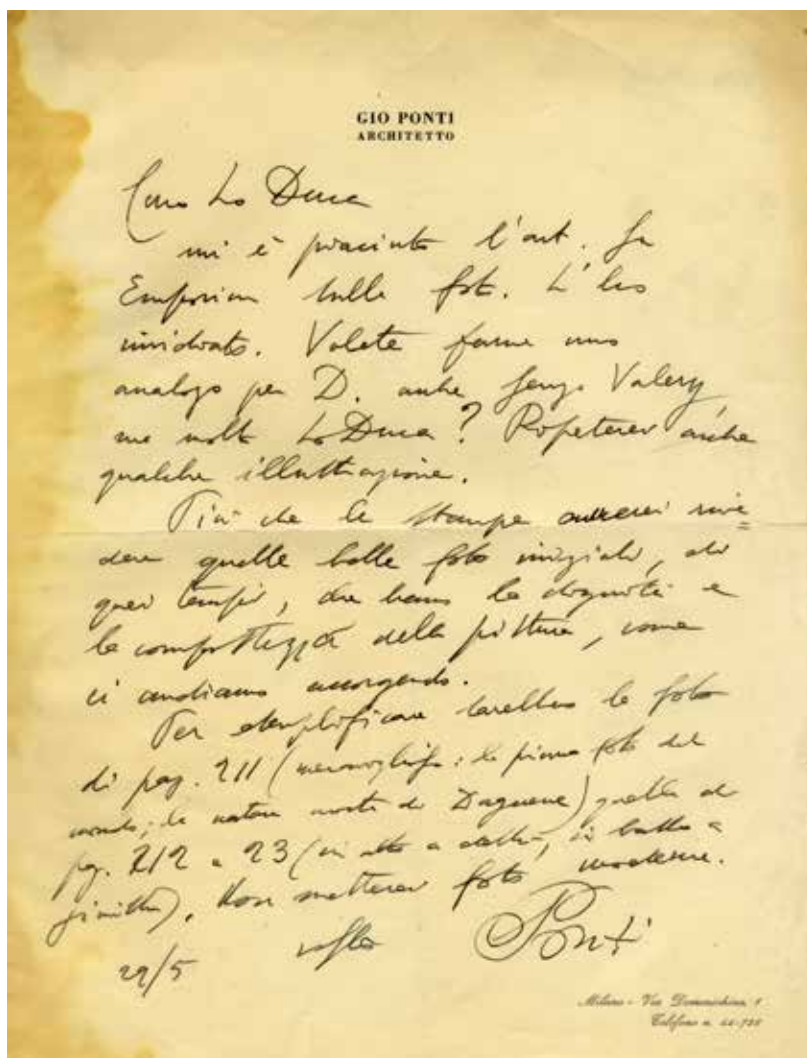 GIO PONTI
ARCHITETTO
Caro Lo Duca
mi è piaciuto l'art. su
Emporium sulle foto. L'ho
invidiato. Volete farne uno
analogo per D. anche senza Valery,
ma molto LoDuca? Ripeterei anche
qualche illustrazione.
Più che le stampe amerei rive=
dere quelle belle foto iniziali, di
quei tempi, che hanno la dignità e
la compostezza della pittura, come
ci andiamo accorgendo.
Per esemplificare sarebbero le foto
di pag. 211 (meravigliose: la prima foto del
mondo; la natura morta di Daguerre) quelle di
pag. 212 e 23 (in alto a destra, in basso a
sinistra). Non metterei foto moderne.
Ponti
29/5
Milano - Via
Telefono n.